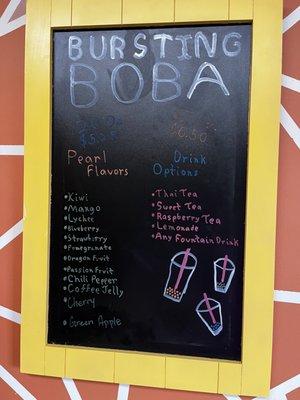 BURSTING
BOBA
Pearl
Flavors
Drink
Options
• Kiwi
• Mango
• Lychee
• Blueberry
• Strawberry
• Pomegranate
• Dragon Fruit
• Passion Fruit
• Chili Pepper
• Coffee Jelly
• Cherry
• Green Apple
• Thai Tea
• Sweet Tea
• Raspberry Tea
• Lemonade
• Any Fountain Drink